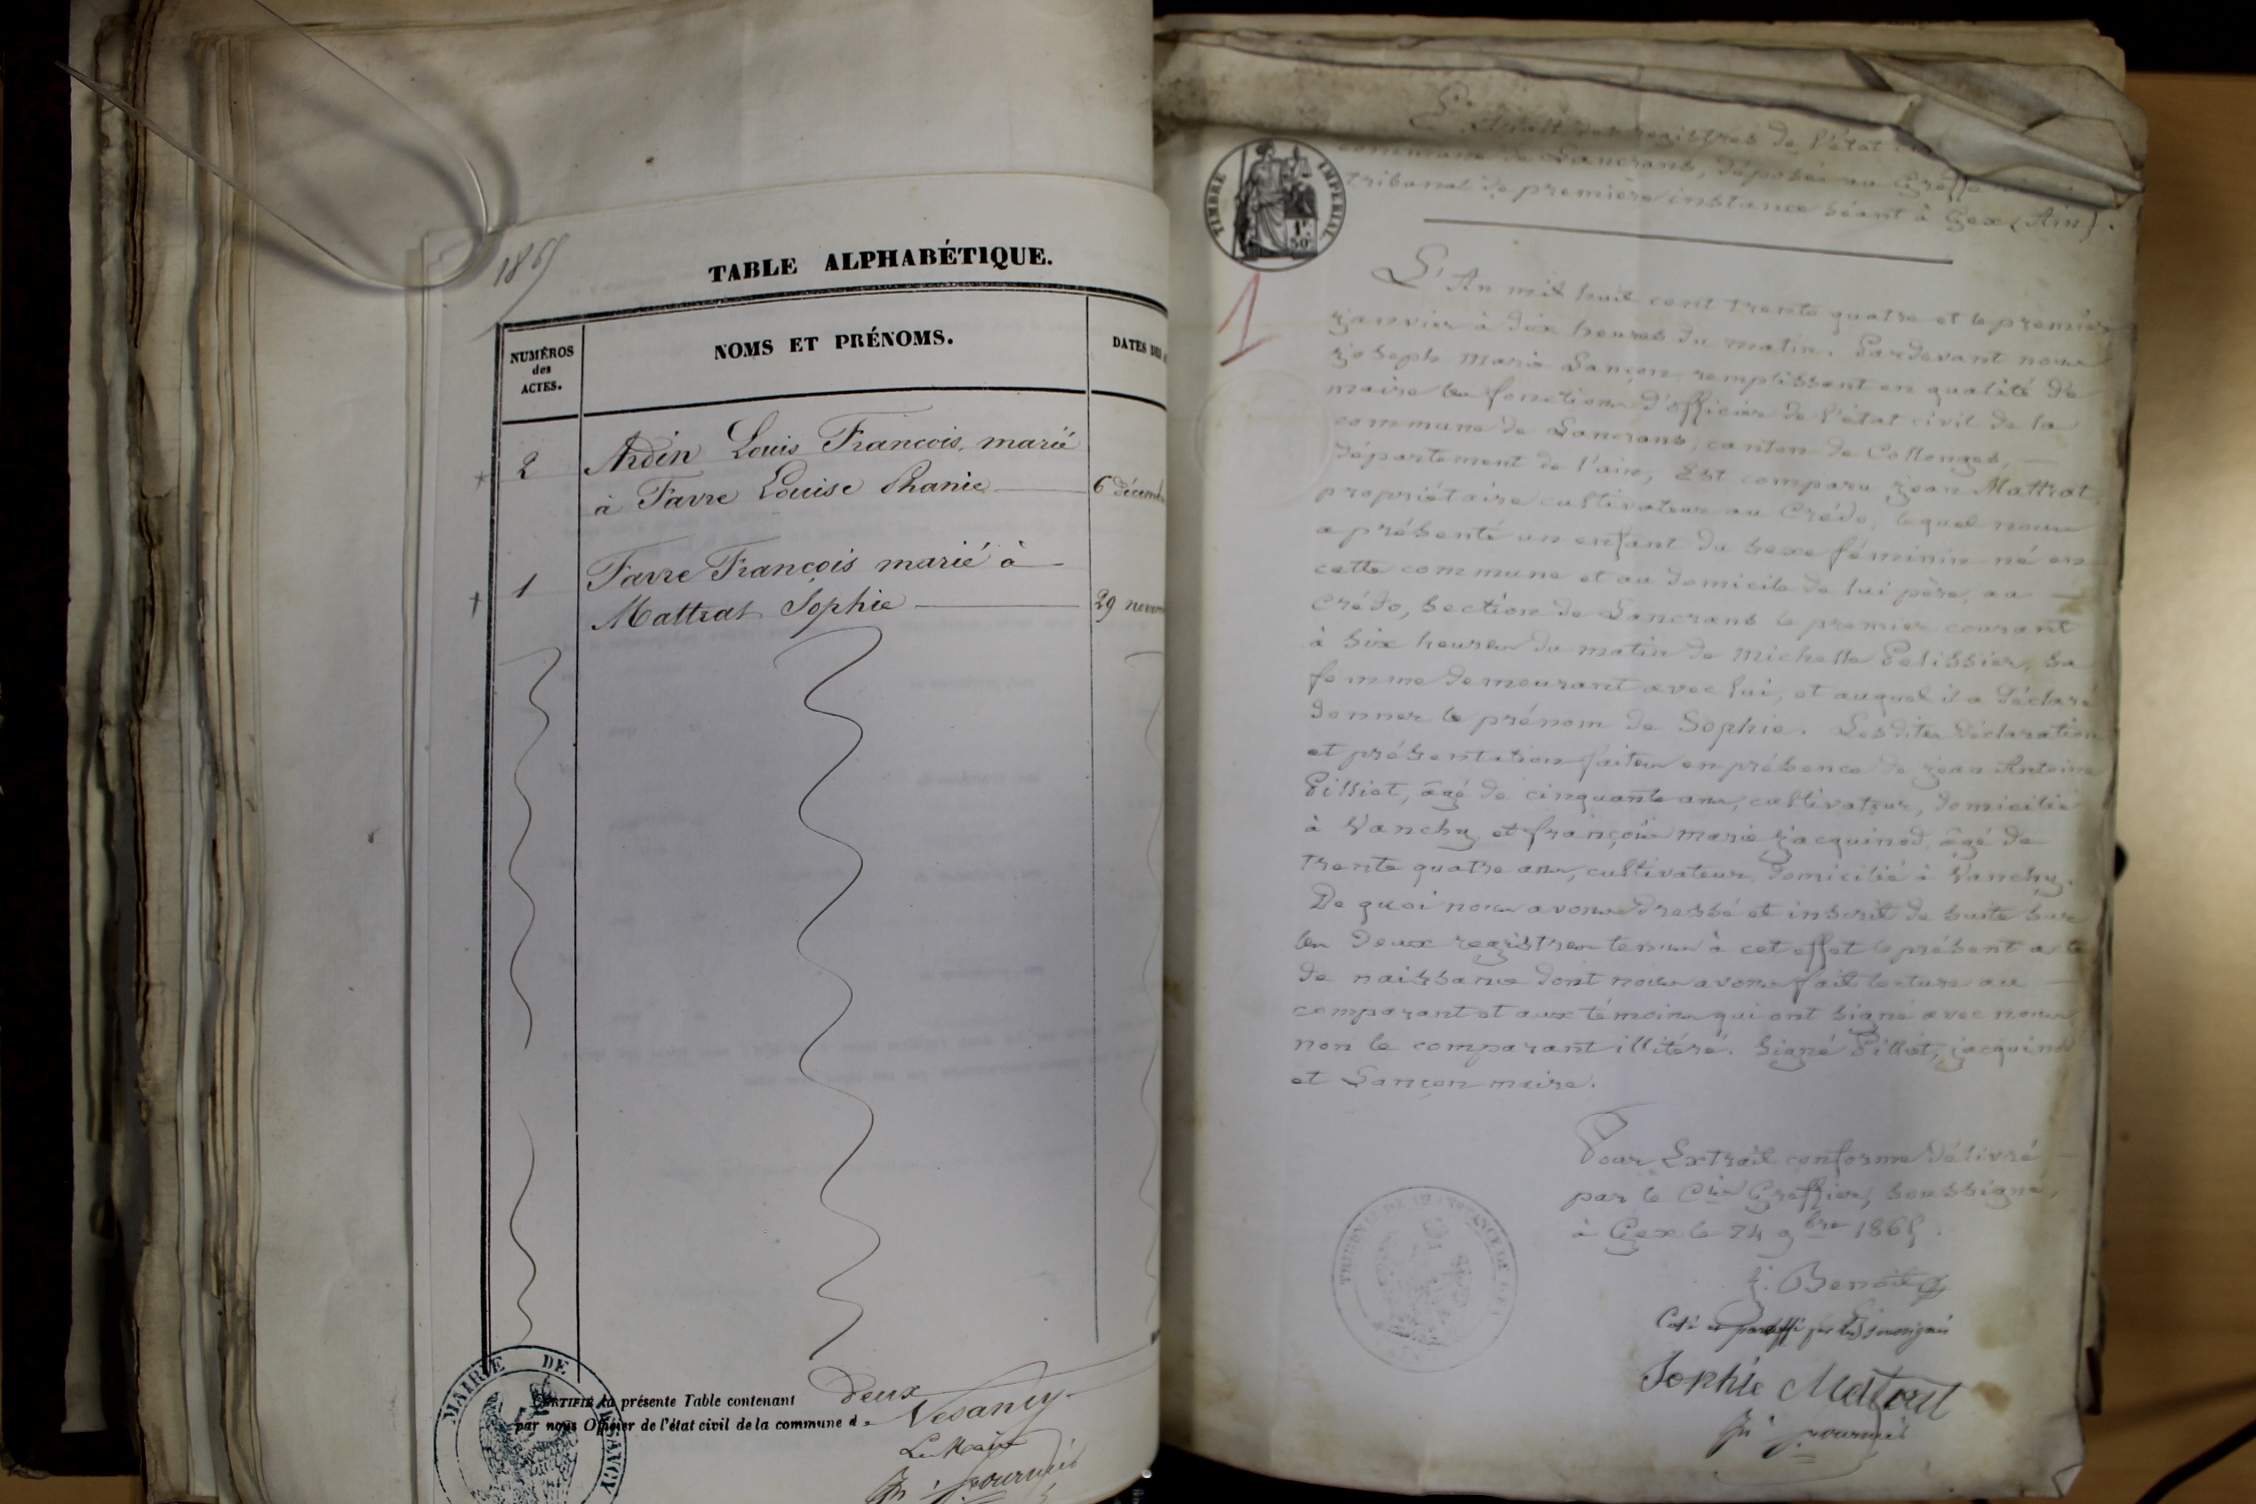 1865
TABLE ALPHABÉTIQUE.
NUMÉROS
des
ACTES.
NOMS ET PRÉNOMS.
DATES DES
2
Ardin Louis François, marié
à Favre Louise Phanie
6 décemb
1
Favre François marié à
Mattrat Sophie
29 novem
CERTIFIÉ la présente Table contenant deux
par nous Officier de l'état civil de la commune d Vesancy
Le Maire
MAIRIE DE VESANCY
Extrait des registres de l'état
commune de Lancrans, déposés au Greffe
tribunal de première instance séant à Gex (Ain).
TIMBRE IMPERIAL
1F
50c
1
L'An mil huit cent trente quatre et le premier
janvier à dix heures du matin. Pardevant nous
joseph marie Lançon remplissant en qualité de
maire les fonctions d'officier de l'état civil de la
commune de Lancrans, canton de Collonges,
département de l'ain, Est comparu jean Mattrat,
propriétaire cultivateur au Crédo, lequel nous
a présenté un enfant du sexe féminin né en
cette commune et au domicile de lui père, au
Crédo, section de Lancrans le premier courant
à six heures du matin de michelle Pelissier, sa
femme demeurant avec lui, et auquel il a déclaré
donner le prénom de Sophie. Lesdites déclaration
et présentation faites en présence de jean Antoine
Pilliot, âgé de cinquante ans, cultivateur, domicilié
à Vanchy et françois marie jacquinod, âgé de
trente quatre ans, cultivateur domicilié à Vanchy.
De quoi nous avons dressé et inscrit de suite sur
les deux registres tenus à cet effet le présent acte
de naissance dont nous avons fait lecture au
comparant et aux témoins qui ont signé avec nous
non le comparant illitéré. Signé Pilliot, jacquinod
et Lançon maire.
Pour Extrait conforme délivré
par le Cis Greffier, soussigné,
à Gex le 24 9bre 1865.
Benoit
Coté et paraffé par les soussignés
Sophie Matrat